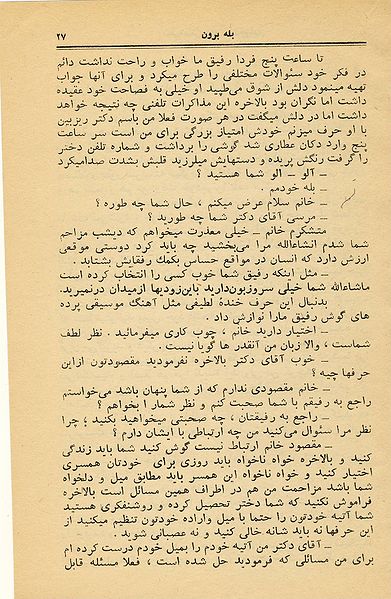 بله برون ۲۷
تا ساعت پنج فردا رفیق ما خواب و راحت نداشت دائم
در فکر خود سئوالات مختلفی را طرح میکرد و برای آنها جواب
تهیه مینمود دلش از شوق می‌طپید او خیلی به فصاحت خود عقیده
داشت اما نگران بود بالاخره این مذاکرات تلفنی چه نتیجه خواهد
داشت اما در دلش میگفت در هر صورت فعلا من باسم دکتر ریزبین
با او حرف میزنم خودش امتیاز بزرگی برای من است سر ساعت
پنج وارد دکان عطاری شد گوشی را برداشت و شماره تلفن دختر
را گرفت رنگش پریده و دستهایش میلرزید قلبش بشدت صدا میکرد
ـ آلو ـ الو شما هستید ؟
ـ بله خودمم .
ـ خانم سلام عرض میکنم ، حال شما چه طوره ؟
ـ مرسی آقای دکتر شما چه طورید ؟
متشکرم خانم ـ خیلی معذرت میخواهم که دیشب مزاحم
شما شدم انشاءالله مرا می‌بخشید چه باید کرد دوستی موقعی
ارزش دارد که انسان در مواقع حساس بکمك رفقایش بشتابد .
ـ مثل اینکه رفیق شما خوب کسی را انتخاب کرده است
ماشاءالله شما خیلی سروزبون‌دارید باین‌زودیها ازمیدان درنمیرید.
بدنبال این حرف خندهٔ لطیفی مثل آهنگ موسیقی پرده
های گوش رفیق مارا نوازش داد .
ـ اختیار دارید خانم ، چوب کاری میفرمائید . نظر لطف
شماست ، والا زبان من آنقدر ها گویا نیست .
ـ خوب آقای دکتر بالاخره نفرمودید مقصودتون ازاین
حرفها چیه ؟
ـ خانم مقصودی ندارم که از شما پنهان باشد می‌خواستم
راجع به رفیقم با شما صحبت کنم و نظر شما را بخواهم ؟
ـ راجع به رفیقتان ، چه صحبتی میخواهید بکنید ؛ چرا
نظر مرا سئوال می‌کنید من چه ارتباطی با ایشان دارم ؟
ـ مقصود خانم ارتباط نیست گوش کنید شما باید زندگی
کنید و بالاخره خواه ناخواه باید روزی برای خودتان همسری
اختیار کنید و خواه ناخواه این همسر باید مطابق میل و دلخواه
شما باشد مزاحمت من هم در اطراف همین مسائل است بالاخره
فراموش نکنید که شما دختر تحصیل کرده و روشنفکری هستید
شما آتیه خودتون را حتما با میل واراده خودتون تنظیم میکنید از
این حرفها نه باید شانه خالی کنید و نه عصبانی شوید .
ـ آقای دکتر من آتیه خودم را بمیل خودم درست کرده ام
برای من مسائلی که فرمودید حل شده است ، فعلا مسئله قابل